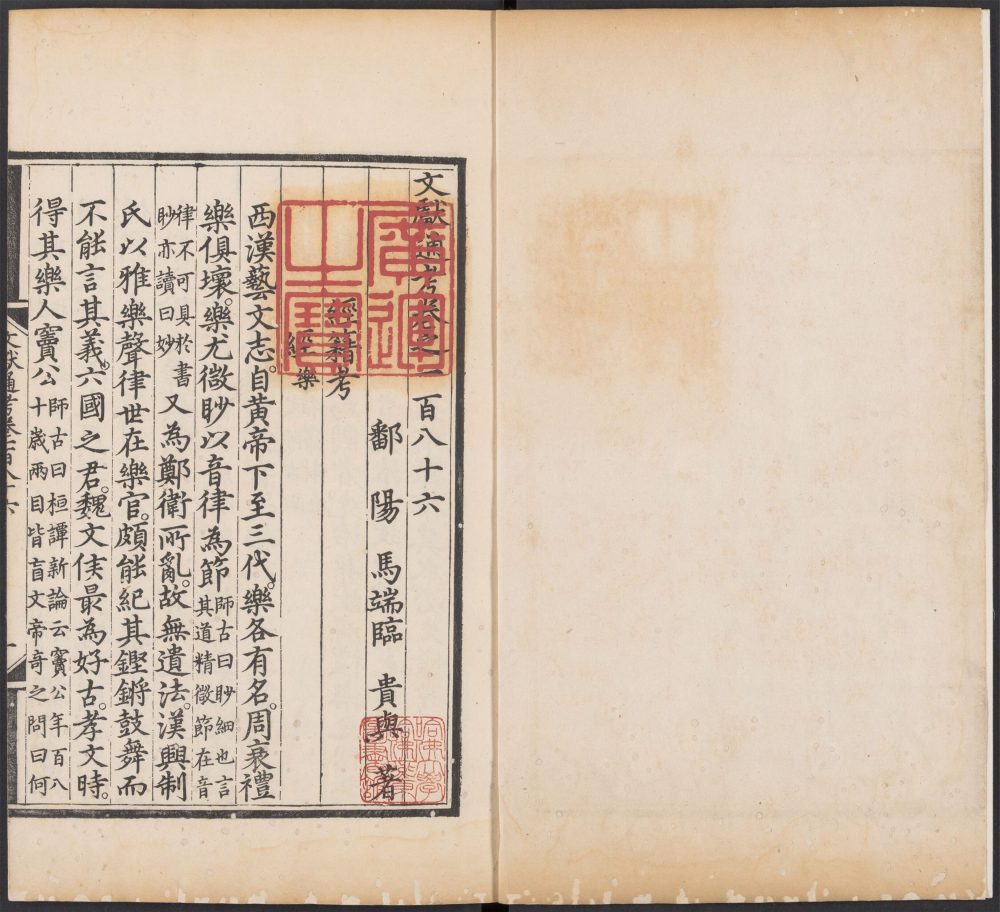 文獻通考卷之一百八十六
鄱陽馬端臨貴與著
經籍考
經樂
西漢藝文志。自黃帝下至三代。樂各有名。周衰禮
樂俱壞。樂尤微眇以音律為節師古曰眇細也言其道精微節在音
律不可具於書眇亦讀曰妙又為鄭衛所亂。故無遺法。漢興制
氏以雅樂聲律世在樂官。頗能紀其鏗鏘鼓舞而
不能言其義。六國之君。魏文侯最為好古。孝文時。
得其樂人竇公師古曰桓譚新論云竇公年百八十歲兩目皆盲文帝奇之問曰何
文獻通考卷一百八十六
廣運之寶